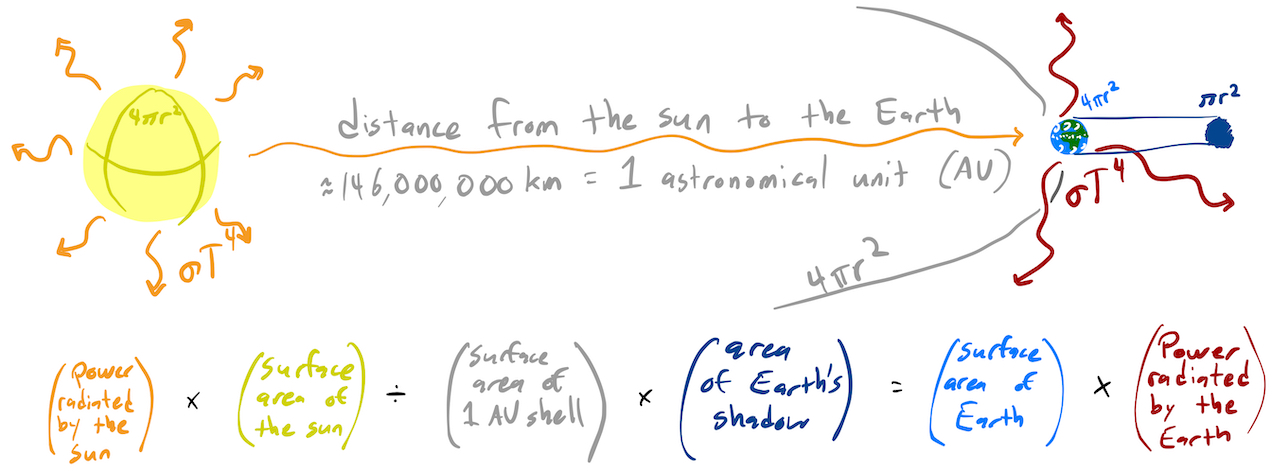 4πr²
σT⁴
distance from the sun to the Earth
≈146,000,000 km = 1 astronomical unit (AU)
4πr²
4πr²
πr²
σT⁴
(Power radiated by the sun) × (surface area of the sun) ÷ (surface area of 1 AU shell) × (area of Earth's shadow) = (surface area of Earth) × (Power radiated by the Earth)